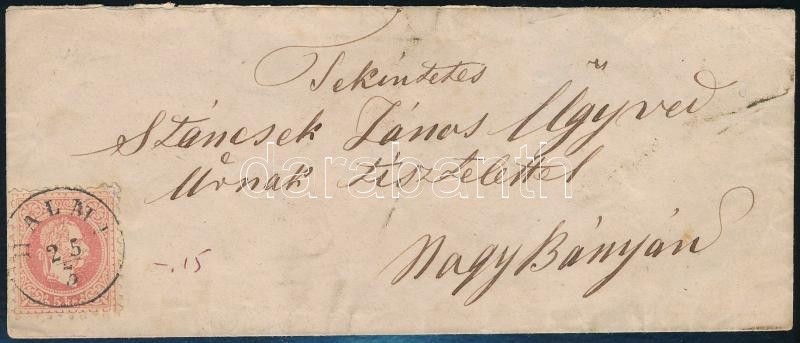 Tekintetes
Stáncsek János Ügyved
Úrnak tisztelettel
Nagy Bányán
HALMI
25
5
5 kr
-.15
darabanth